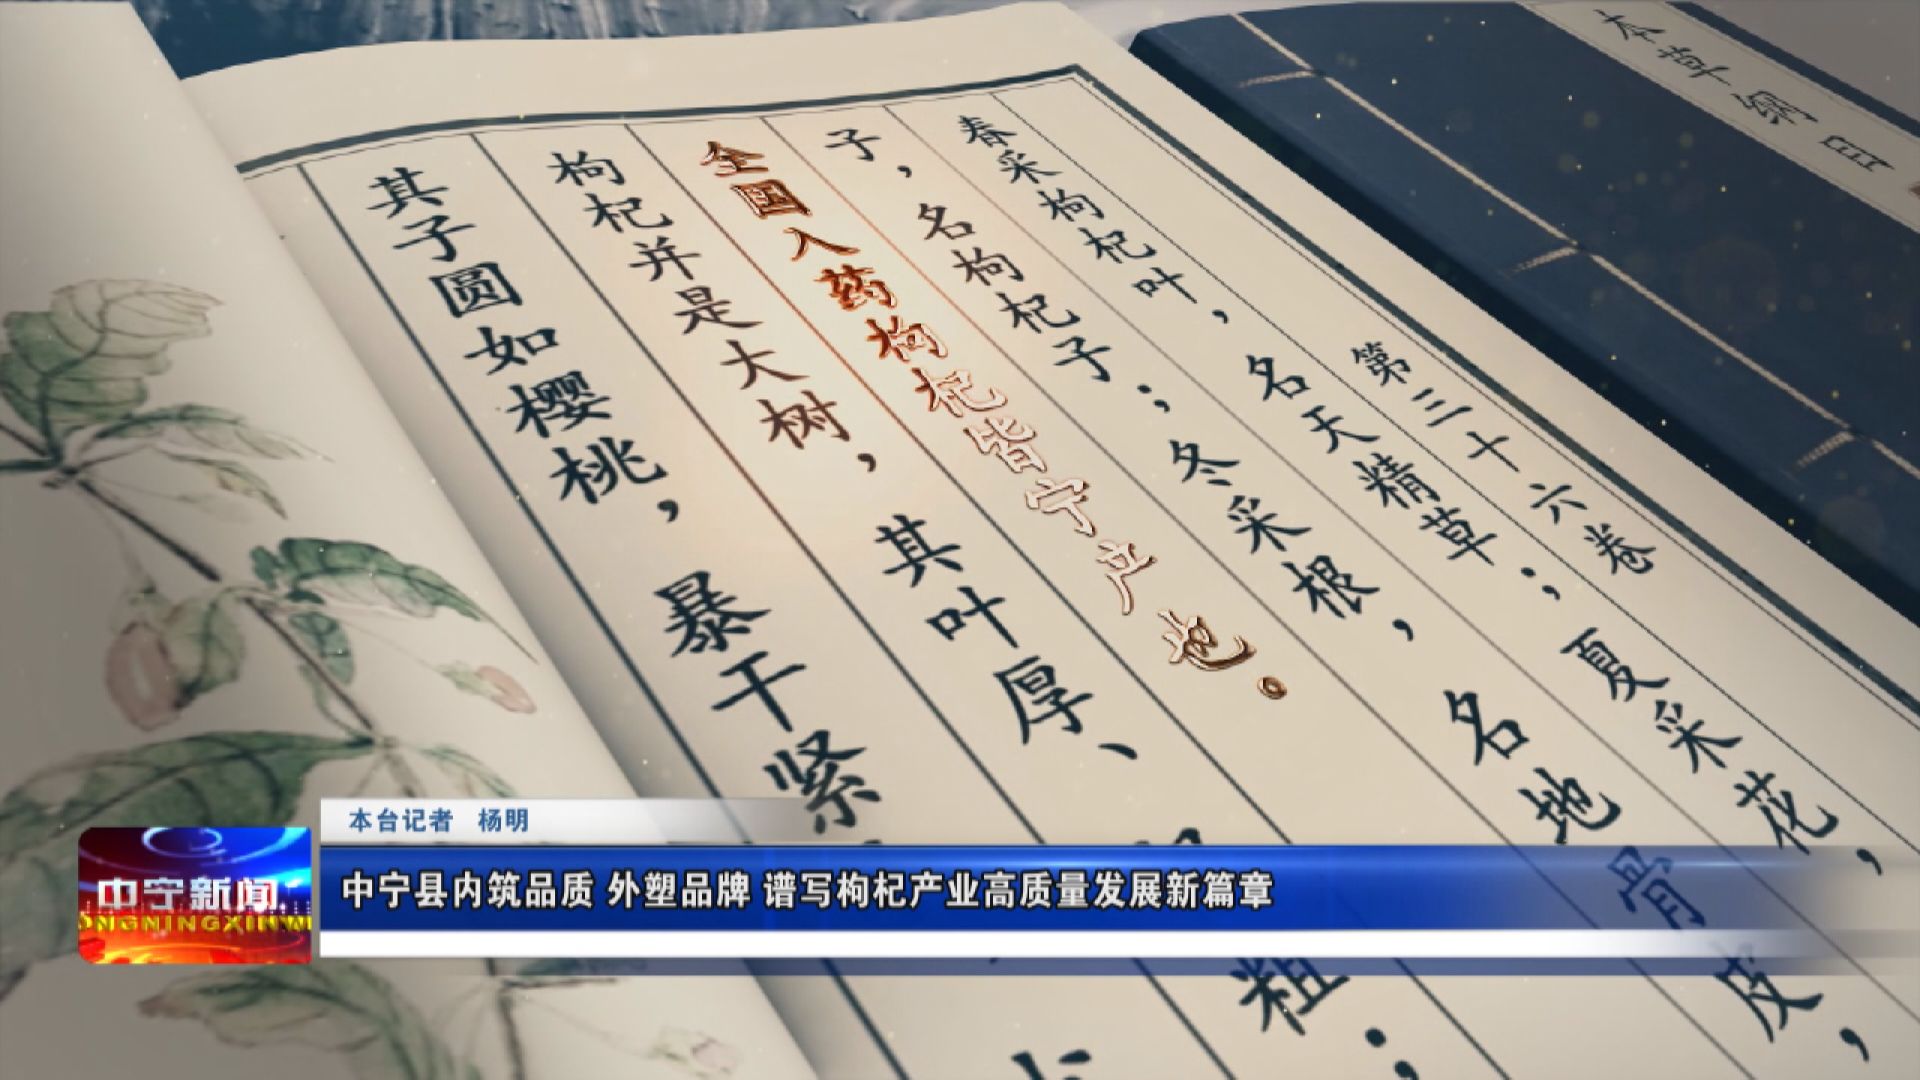 本草纲目
第三十六卷
春采枸杞叶，名天精草；夏采花，
子，名枸杞子；冬采根，名地骨皮，
全国入药枸杞皆宁产也。
枸杞并是大树，其叶厚、
粗；
其子圆如樱桃，暴干紧
本台记者 杨明
中宁县内筑品质 外塑品牌 谱写枸杞产业高质量发展新篇章
中宁新闻
ONGNINGXINW